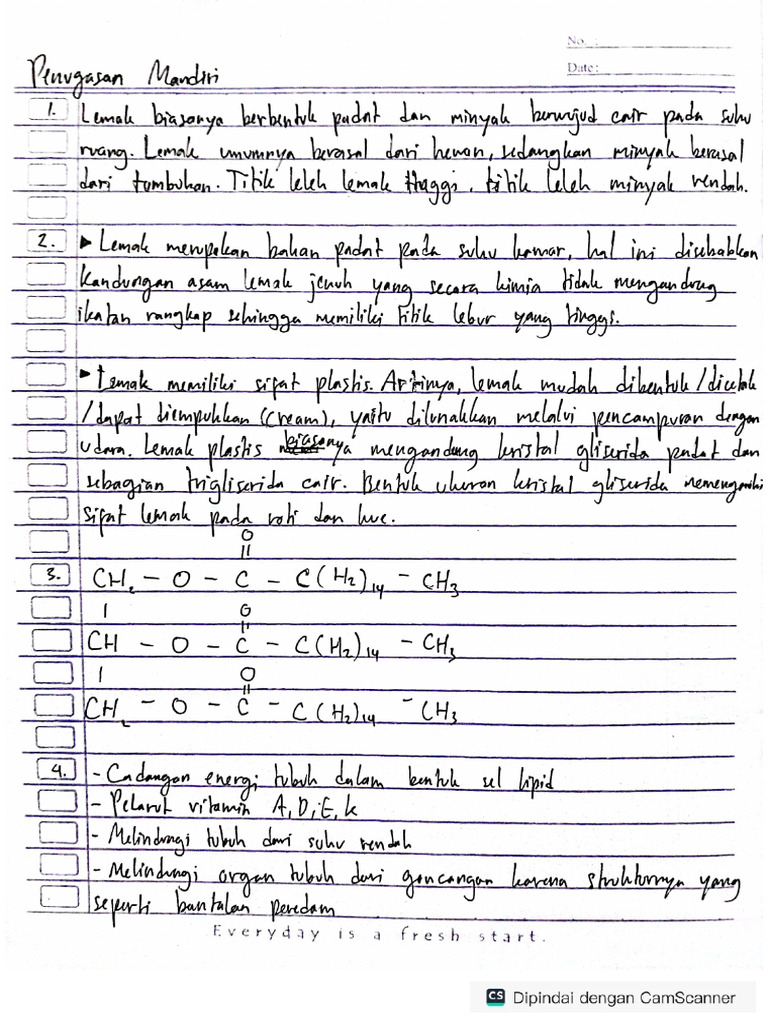 No. :
Date :
Penugasan Mandiri
1. Lemak biasanya berbentuk padat dan minyak berwujud cair pada suhu
ruang. Lemak umumnya berasal dari hewan, sedangkan minyak berasal
dari tumbuhan. Titik leleh lemak tinggi, titik leleh minyak rendah.
2. ▸ Lemak merupakan bahan padat pada suhu kamar, hal ini disebabkan
kandungan asam lemak jenuh yang secara kimia tidak mengandung
ikatan rangkap sehingga memiliki titik lebur yang tinggi.
▸ Lemak memiliki sifat plastis. Artinya, lemak mudah dibentuk/dicetak
/dapat diempukkan (cream), yaitu dilunakkan melalui pencampuran dengan
udara. Lemak plastis biasanya mengandung kristal gliserida padat dan
sebagian trigliserida cair. Bentuk ukuran kristal gliserida memengaruhi
sifat lemak pada roti dan kue.
O
||
3. CH₂ – O – C – C(H₂)₁₄ – CH₃
| O
||
CH – O – C – C(H₂)₁₄ – CH₃
| O
||
CH₂ – O – C – C(H₂)₁₄ – CH₃
4. - Cadangan energi tubuh dalam bentuk sel lipid
- Pelarut vitamin A, D, E, K
- Melindungi tubuh dari suhu rendah
- Melindungi organ tubuh dari goncangan karena strukturnya yang
seperti bantalan peredam
Everyday is a fresh start.
CS Dipindai dengan CamScanner